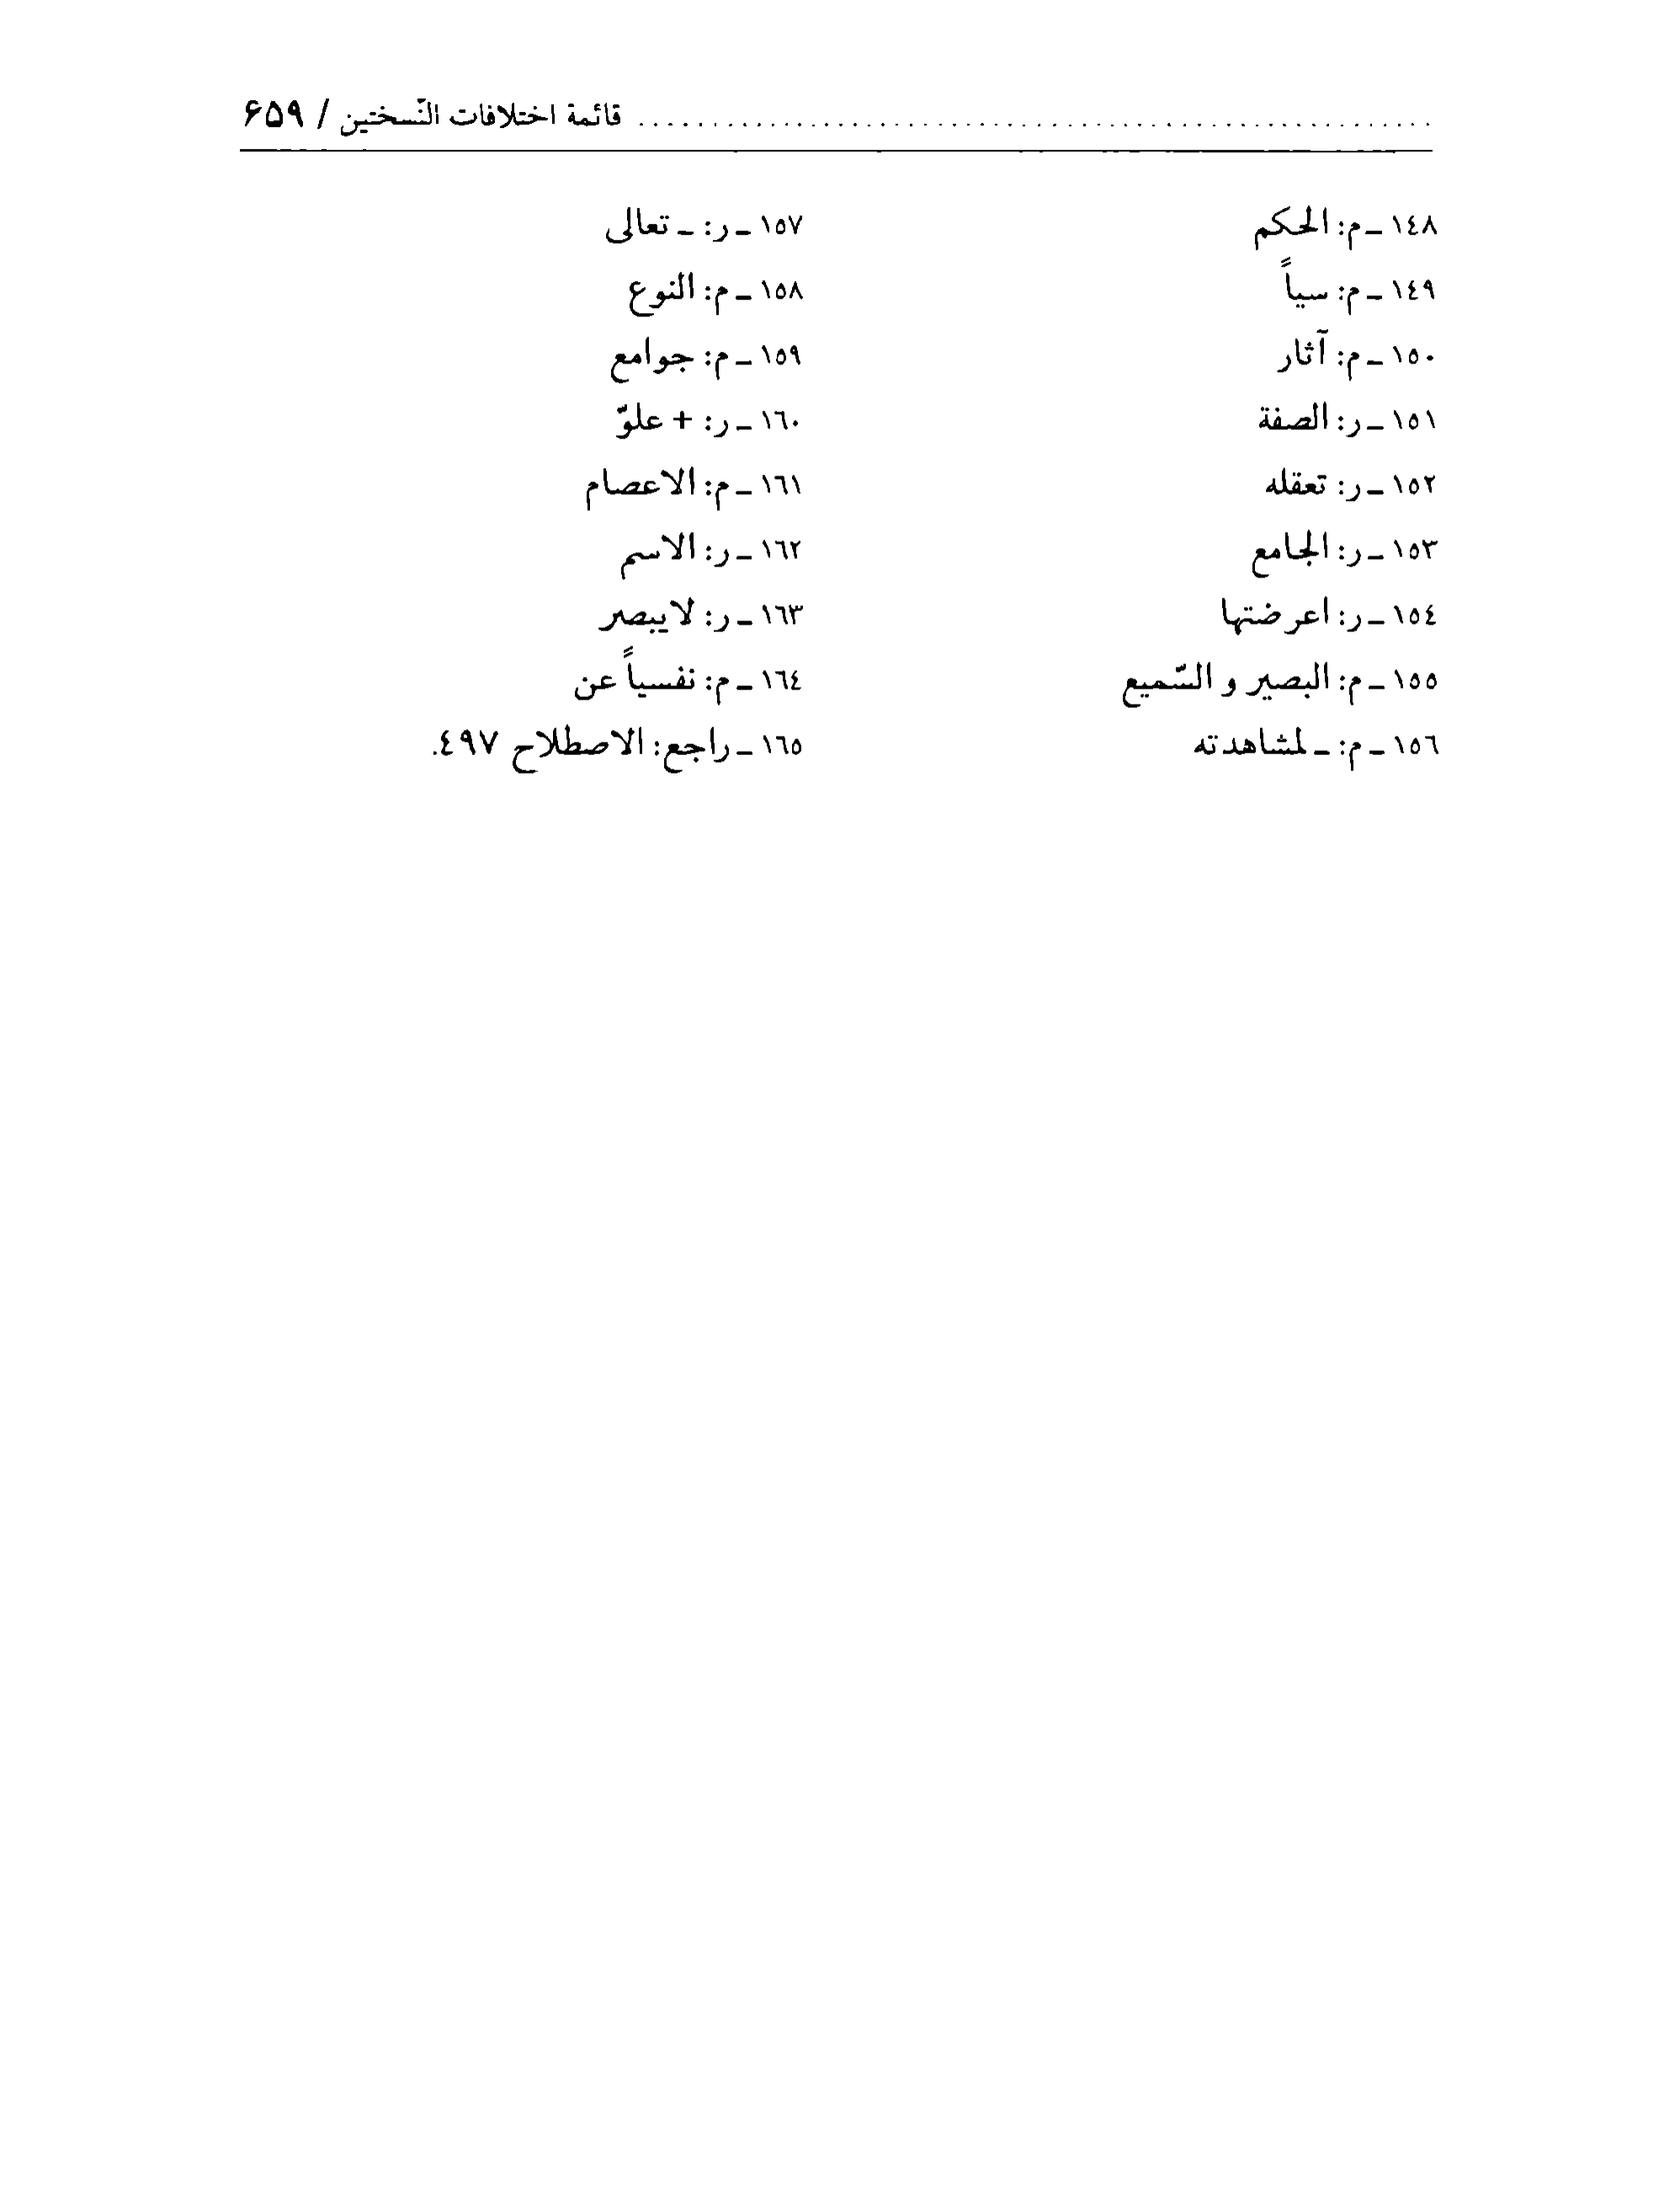 قائمة اختلافات النّسختين / ۶۵۹
١٤٨ ـ م: الحكم
١٤٩ ـ م: سياً
١٥٠ ـ م: آثار
١٥١ ـ ر: الصفة
١٥٢ ـ ر: تعقله
١٥٣ ـ ر: الجامع
١٥٤ ـ ر: اعرضتها
١٥٥ ـ م: البصير و السّميع
١٥٦ ـ م: ـ لمشاهدته
١٥٧ ـ ر: ـ تعالى
١٥٨ ـ م: النوع
١٥٩ ـ م: جوامع
١٦٠ ـ ر: + علوّ
١٦١ ـ م: الاعصام
١٦٢ ـ ر: الاسم
١٦٣ ـ ر: لايبصر
١٦٤ ـ م: نفسياً عن
١٦٥ ـ راجع: الاصطلاح ٤٩٧.